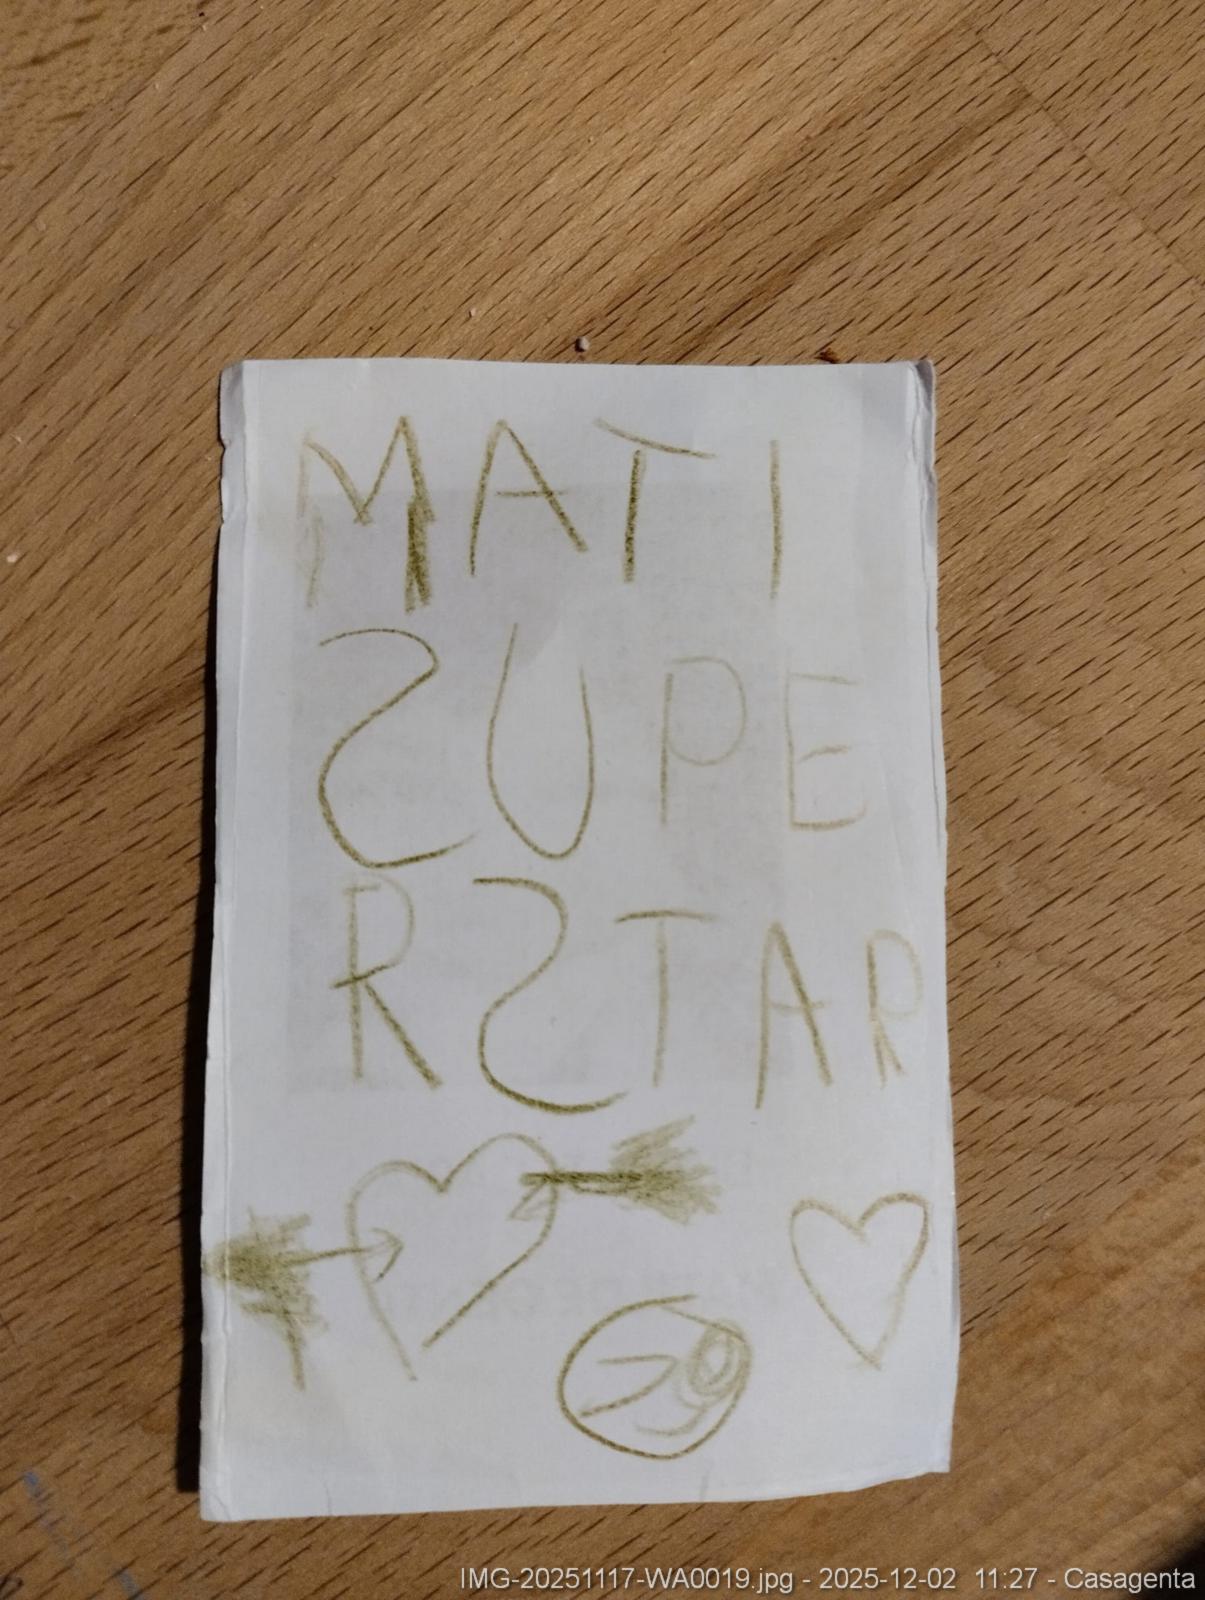 MATI
SUPE
RSTAR
IMG-20251117-WA0019.jpg - 2025-12-02 11:27 - Casagenta